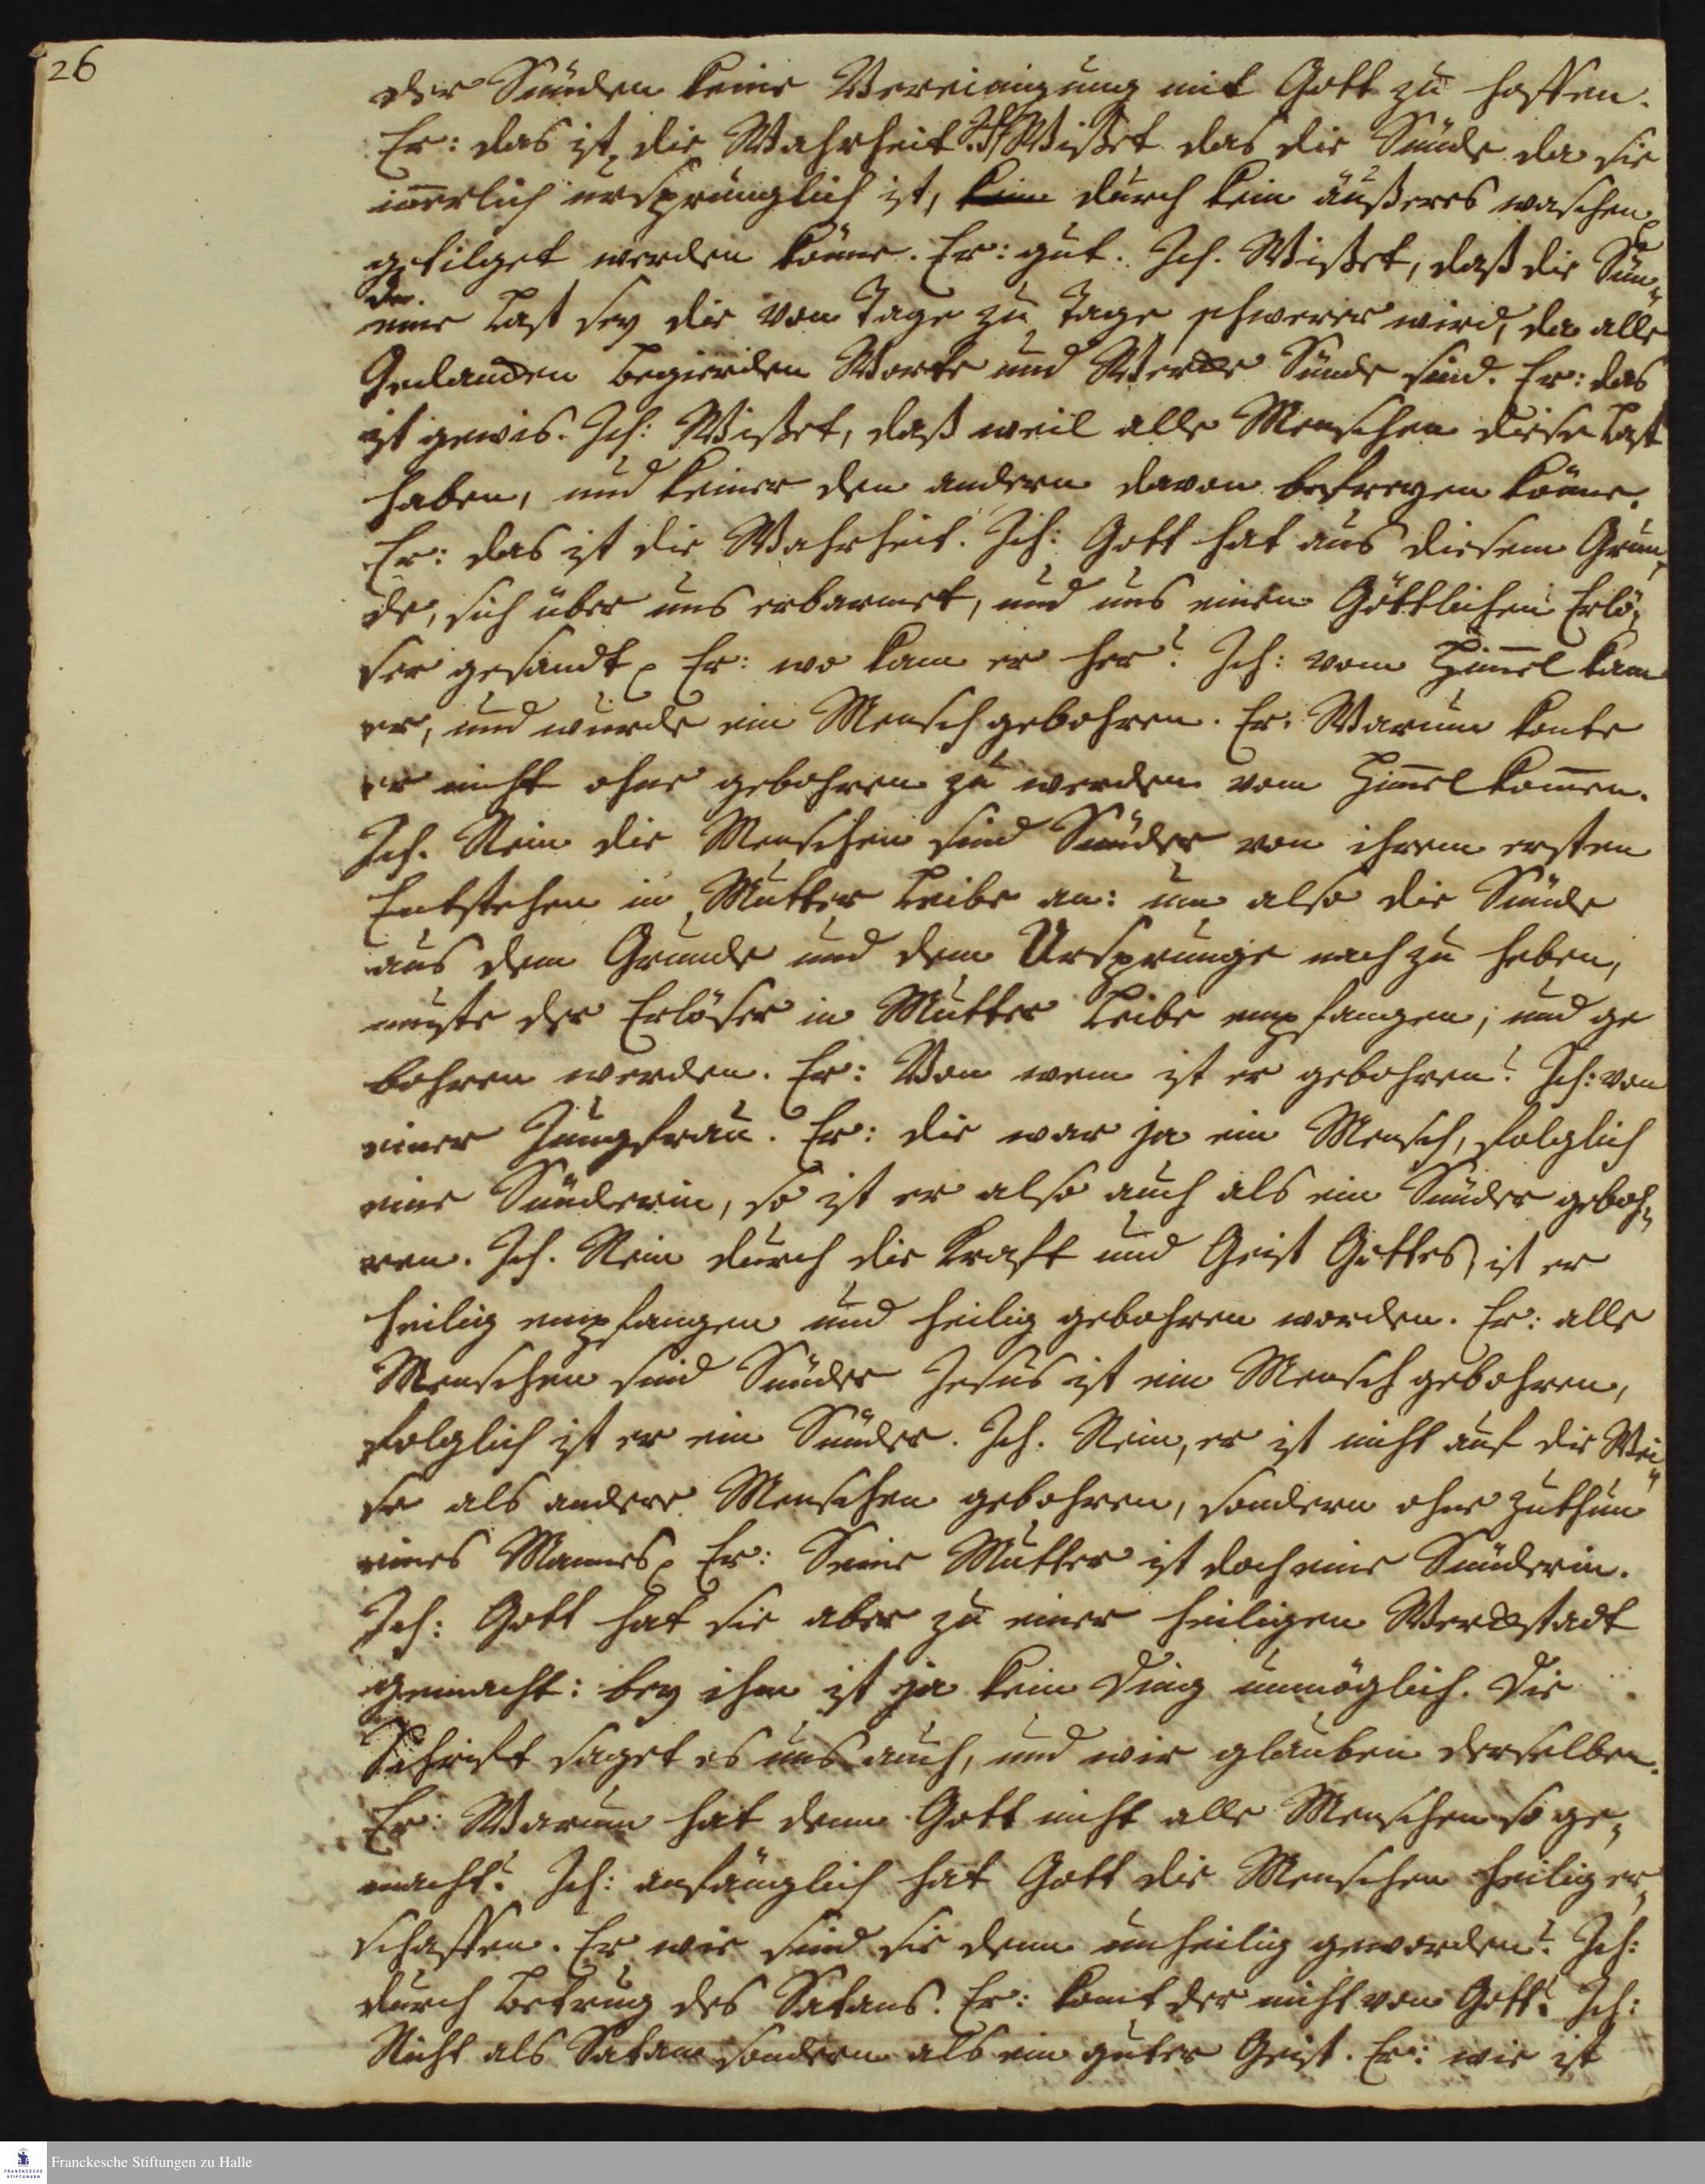 26
der Sünden keine Vereinigung mit Gott zu hoffen.
Er: das ist die Wahrheit. Ich Wißet das die Sünde da sie
iñerlich ursprünglich ist, kein durch kein äußeres waschen
getilget werden könne. Er: gut. Ich. Wißet, daß die Sün¬
de.
eine Last sey die von Tage zu Tage schwerer wird, da alle
Gedancken Begierden Worte und Wercke Sünde sind. Er: das
ist gewis. Ich: Wißet, daß weil alle Menschen diese Last
haben, und keiner den andern davon befreyen könne.
Er: das ist die Wahrheit. Ich: Gott hat aus diesem Grun¬
de, sich über uns erbarmet, und uns einen Göttlichen Erlö¬
ser gesandt. Er: wo kam er her? Ich: vom Him̄el kam
er, und wurde ein Mensch gebohren. Er: Warum konte
er nicht ohne gebohren zu werden vom Him̄el kom̄en.
Ich. Nein die Menschen sind Sünder von ihrem ersten
Entstehen in Mutter Leibe an: um also die Sünde
aus dem Grunde und dem Ursprunge nach zu heben,
muste der Erlöser in Mutter Leibe empfangen, und ge
bohren werden. Er: Von wem ist er gebohren? Ich: von
einer Jungfrau. Er: die war ja ein Mensch, folglich
eine Sünderin, so ist er also auch als ein Sünder geboh¬
ren. Ich. Nein durch die Kraft und Geist Gottes, ist er
heilig empfangen und heilig gebohren worden. Er: alle
Menschen sind Sünder Jesus ist ein Mensch gebohren,
folglich ist er ein Sünder. Ich. Nein, er ist nicht auf die Wei¬
se als andere Menschen gebohren, sondern ohne Zuthun
eines Mannes. Er: Seine Mutter ist doch eine Sünderin.
Ich: Gott hat sie aber zu einer heiligen Werckstadt
gemacht: bey ihm ist ja kein Ding unmöglich. Die
Schrift saget es uns auch, und wir glauben derselben.
Er: Warum hat denn Gott nicht alle Menschen so ge¬
macht? Ich: anfänglich hat Gott die Menschen heilig er¬
schaffen. Er wie sind sie denn unheilig geworden? Ich:
durch Betrug des Satans. Er: kom̄t der nicht von Gott? Ich:
Nicht als Satan sondern als ein guter Geist. Er: wie ist
Franckesche Stiftungen zu Halle
FRANCKESCHE
STIFTUNGEN